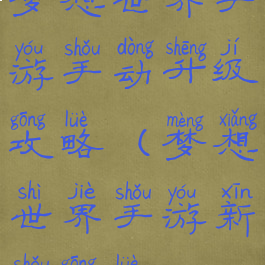 梦想世界手
yóu shǒu dòng shēng jí
游手动升级
gōng lüè mèng xiǎng
攻略（梦想
shì jiè shǒu yóu xīn
世界手游新
shǒu gōng lüè